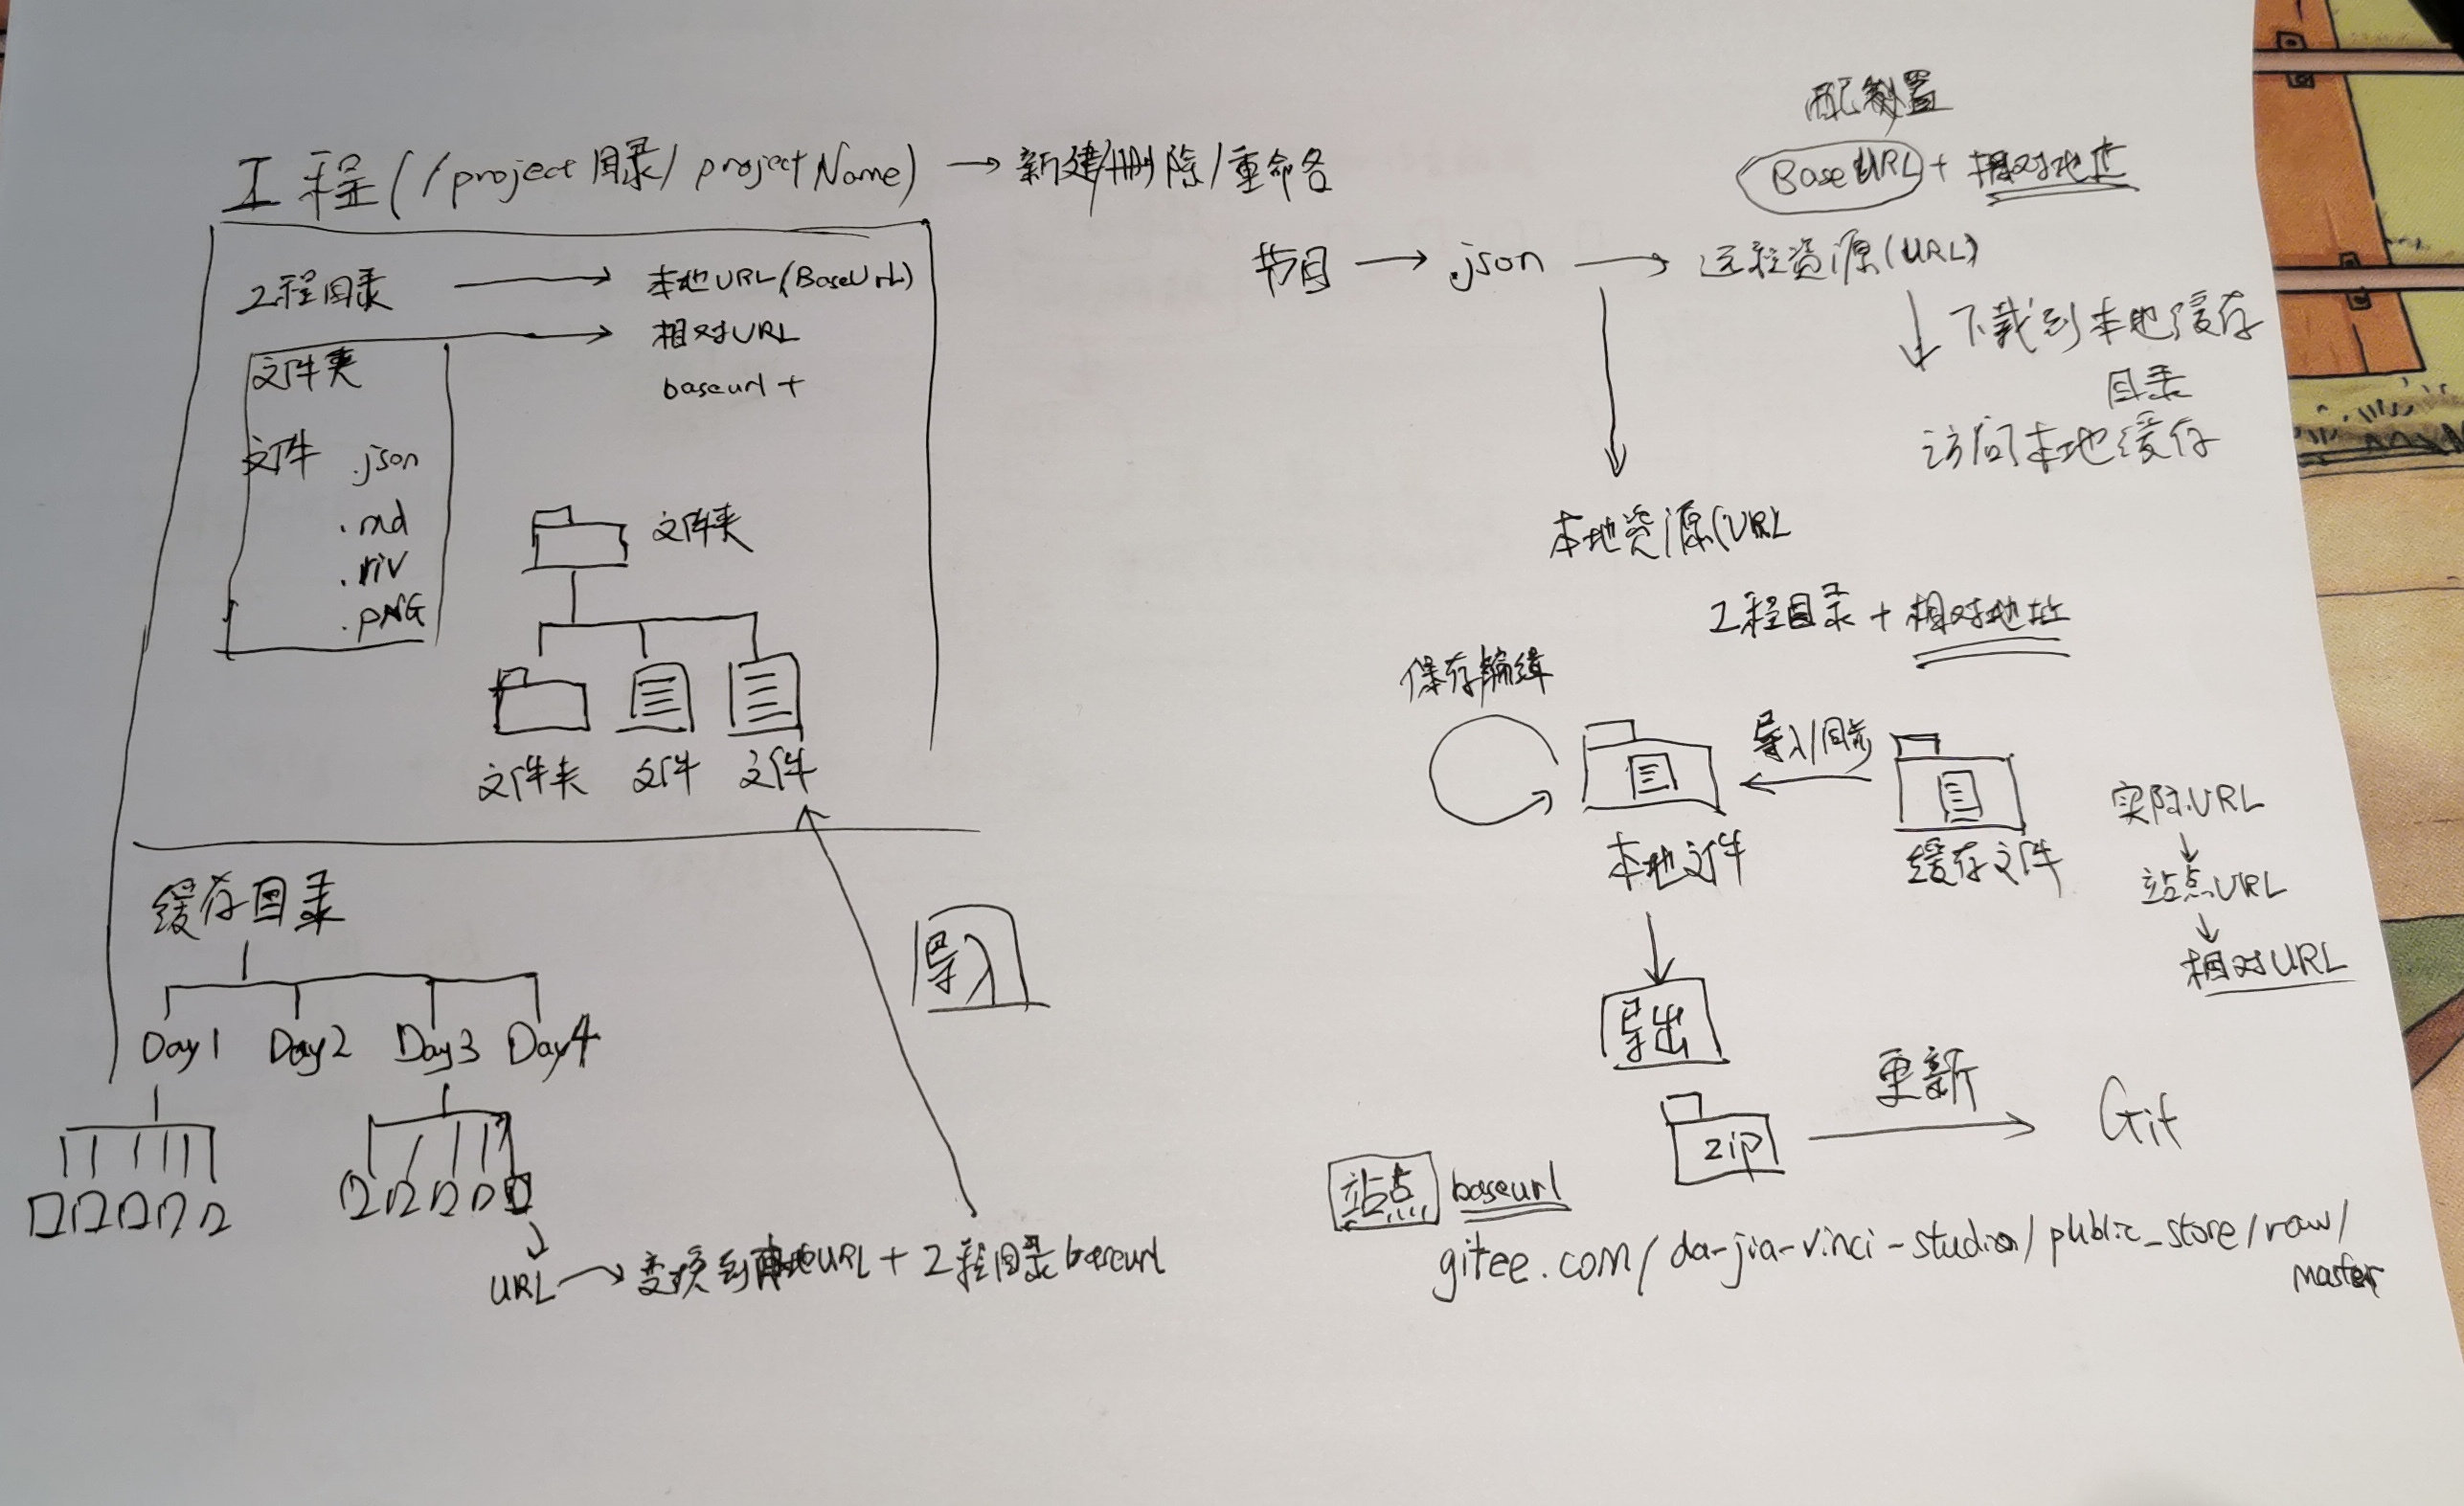 工程(/project目录/projectName) → 新建/删除/重命名
工程目录 → 本地URL(BaseUrL)
→ 相对URL
baseurl +
文件夹
文件 .json
.md
.riv
.PNG
文件夹
文件夹 文件 文件
缓存目录
Day1 Day2 Day3 Day4
导入
URL → 变换到本地URL + 工程目录baseurl
配置
BaseURL + 相对地址
节目 → json → 远程资源(URL)
下载到本地缓存
目录
访问本地缓存
本地资源(URL
工程目录 + 相对地址
保存编辑
导入/同步
本地文件
缓存文件
实际URL
站点URL
相对URL
导出
zip
更新
Git
站点 baseurl
gitee.com/da-jia-vinci-studion/public_store/raw/
master